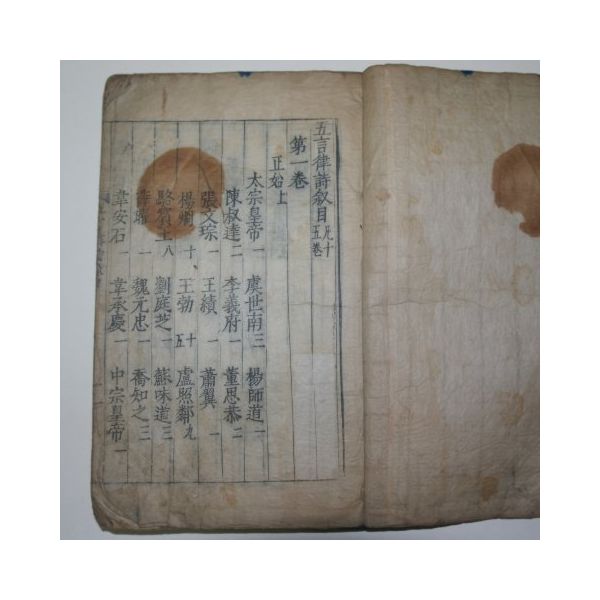 五言律詩敘目 凡十五卷
第一卷
正始上
太宗皇帝一 虞世南三 楊師道一
陳叔達二 李義府一 董思恭二
張文琮一 王績一 蕭翼一
楊烱十 王勃十五 盧照鄰九
駱賓王八 劉庭芝一 蘇味道三
一 魏元忠一 喬知之三
韋安石一 韋承慶一 中宗皇帝一